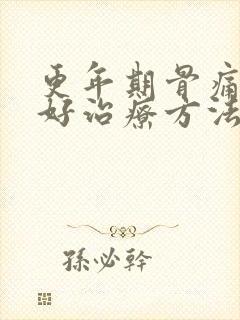 更年期骨痛
好治療方法
孫必幹